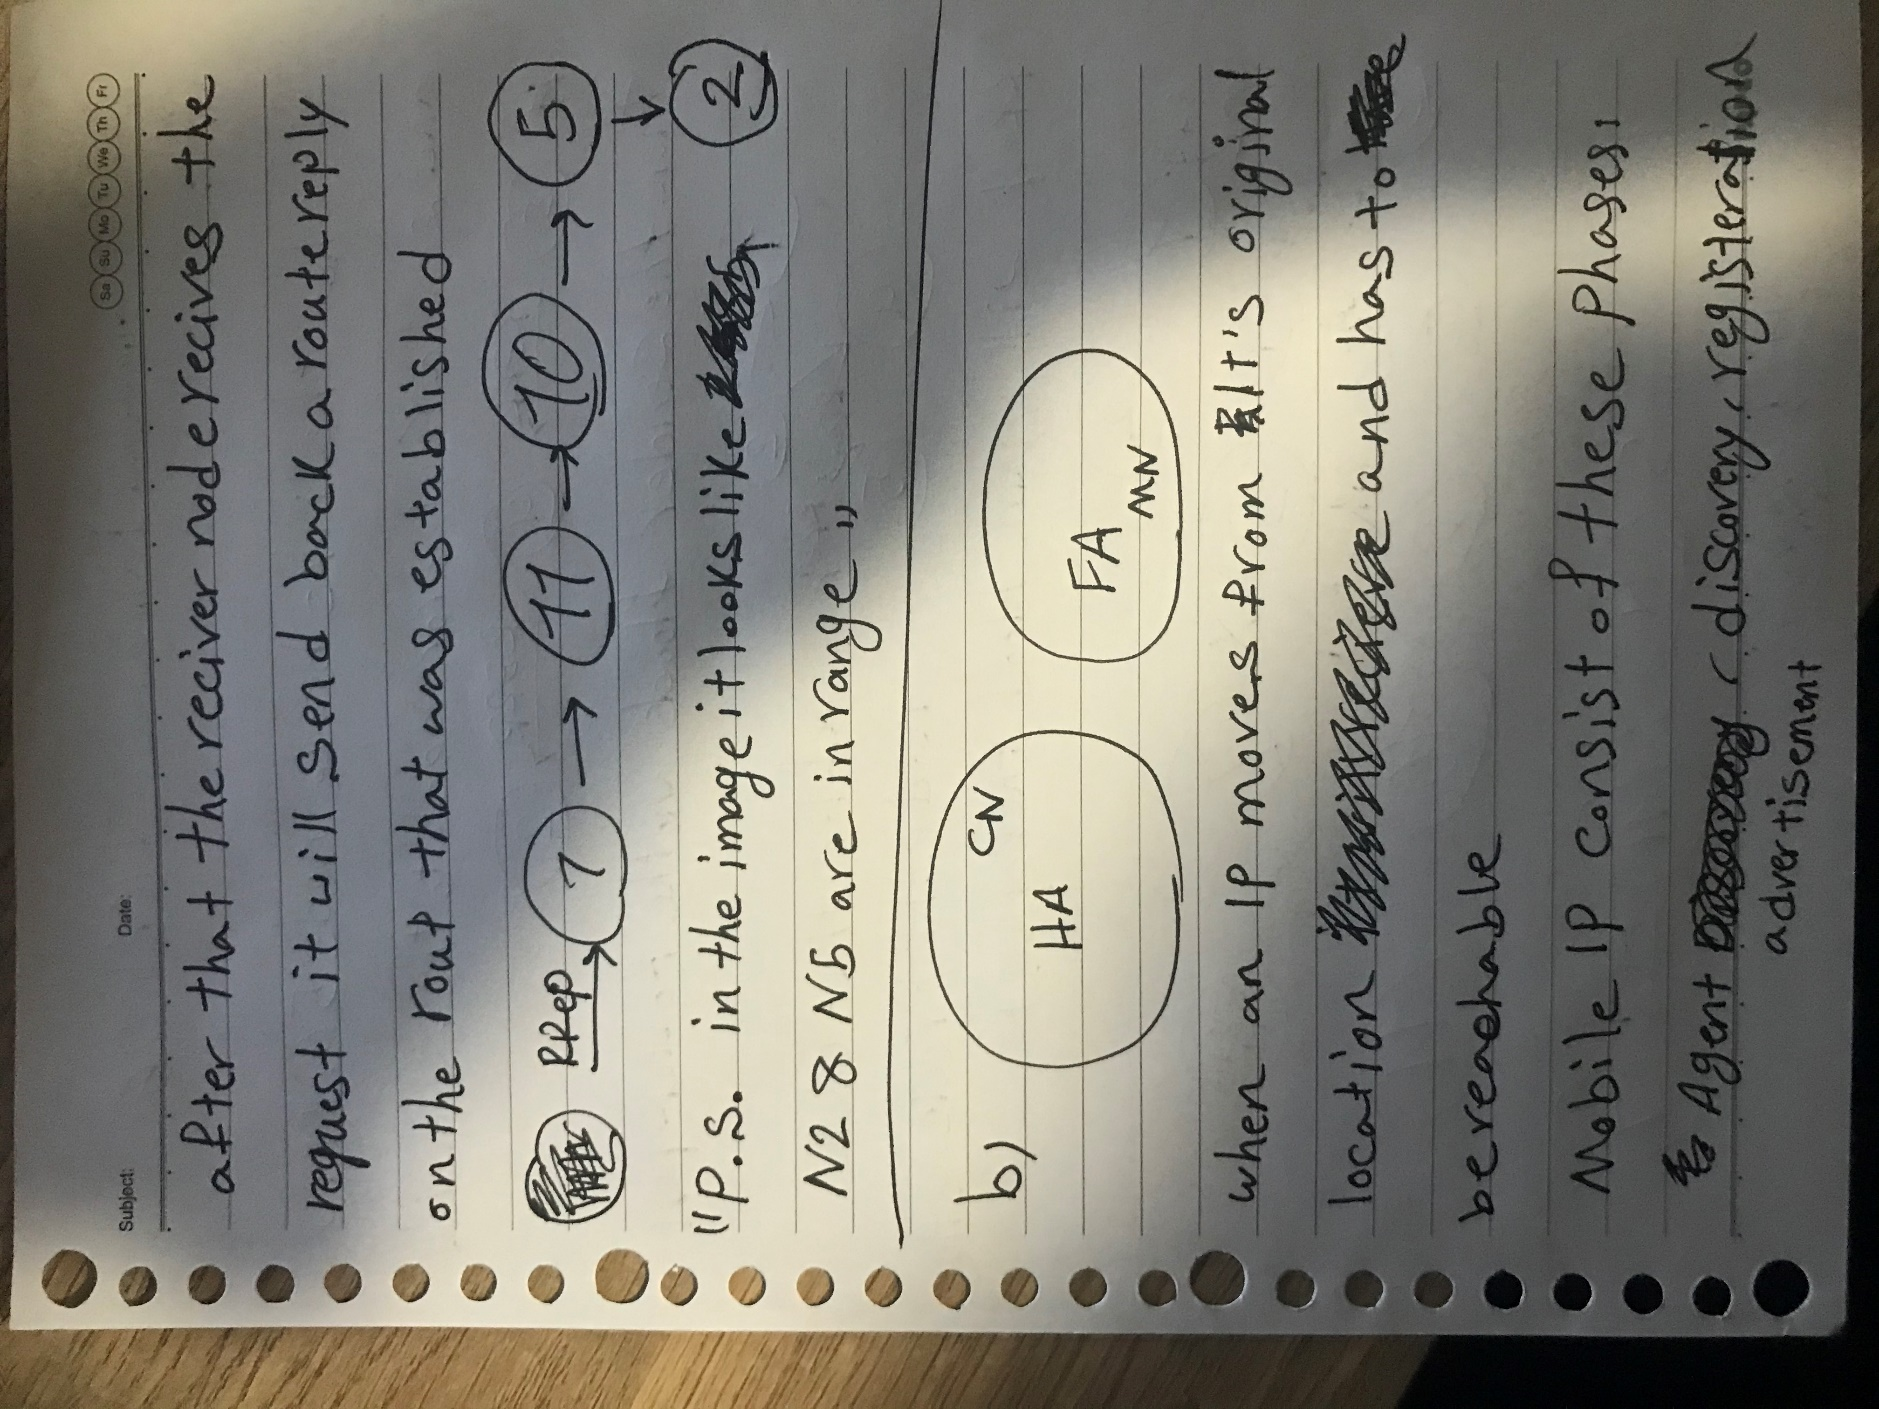 Subject: Date: Sa Su Mo Tu We Th Fr
after that the reciver node recives the
request it will send back a route reply
on the rout that was established
RRep 7 → 11 → 10 → 5 ↓
"P.S. in the image it looks like 2
N2 & N5 are in range"
b) HA CN FA MN
when an IP moves from It's original
location and has to
be reachable
Mobile IP consist of these phases:
Agent (discovery, registeration
advertisement